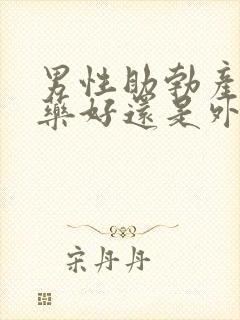 男性助勃產
藥好還是外
宋丹丹